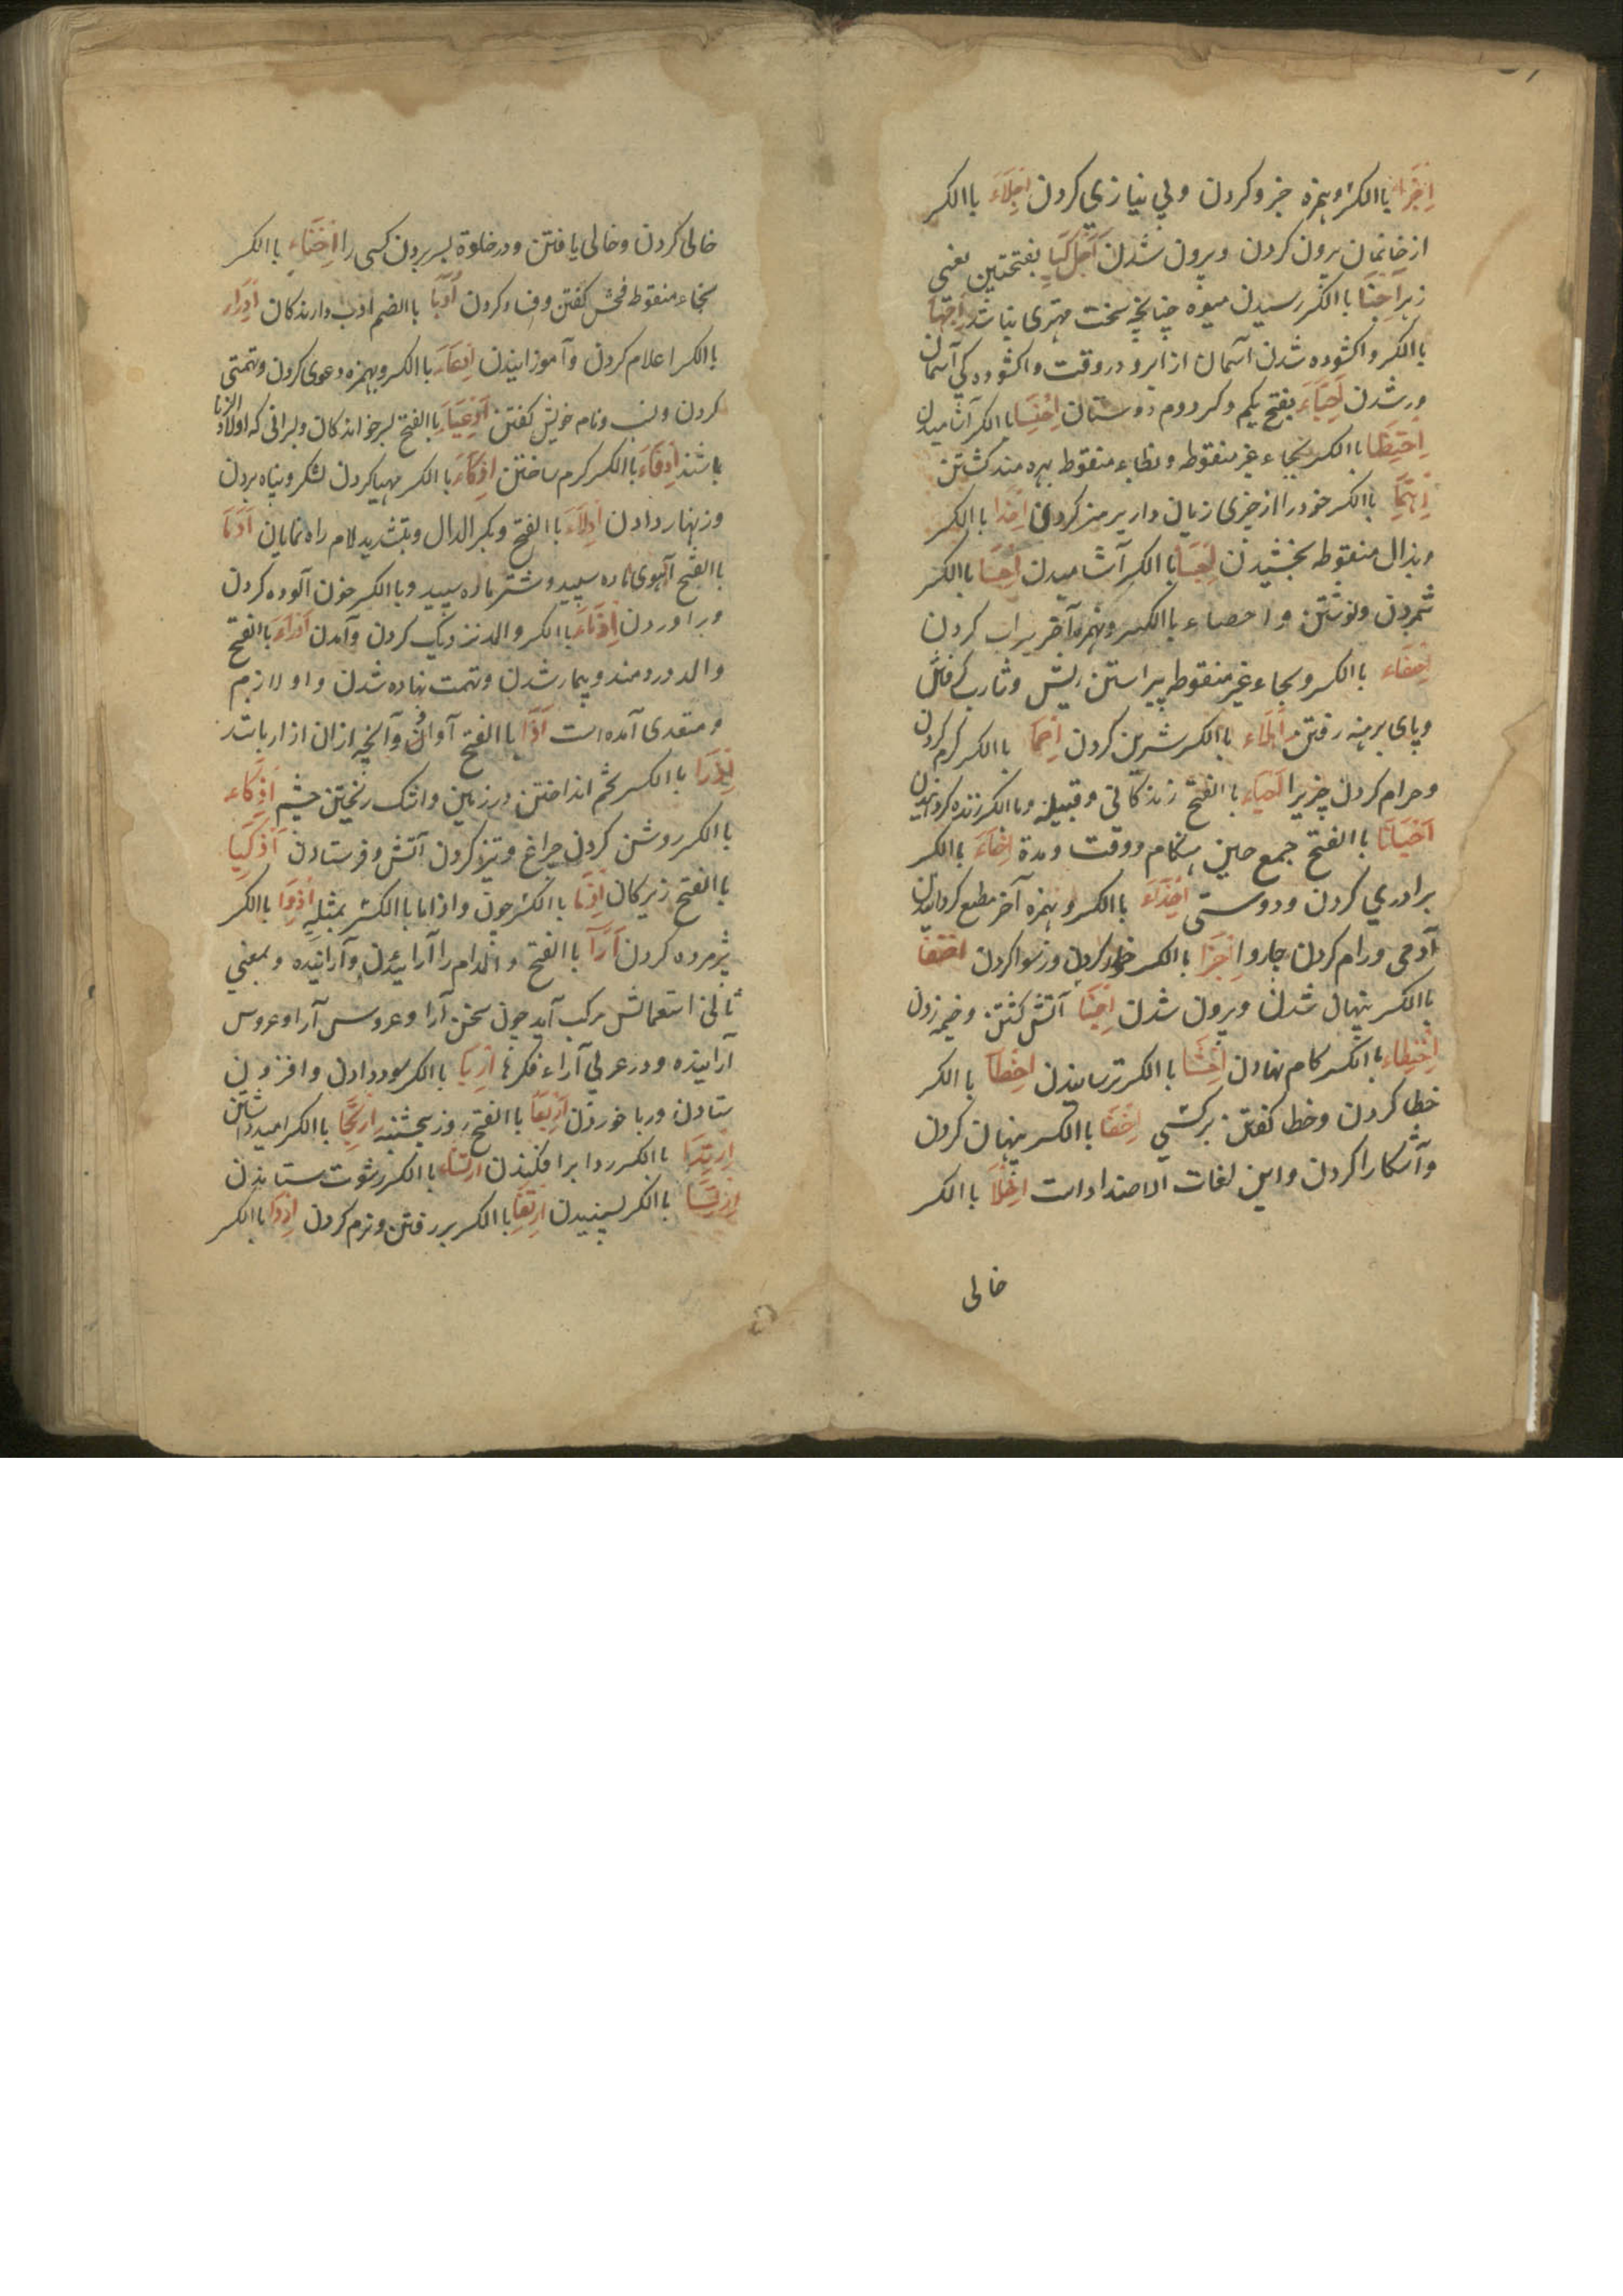 اِجْزَا باالکسر وهمزه جزو کردن وبی نیازی کردن اِجْلَاءَ باالکسر
ازخانمان بیرون کردن وبیرون شدن اَجَلْ کَیَا بفتحتین یعنی
زیرا اِجْنَا باالکسر رسیدن میوه چنانچه سخت مهتری نباشد اِجْهَا
باالکسر واکشوده شدن آسمان از ابر ودر وقت واکشوده کی آسمان
ورشدن اَحِبَّاءَ بفتح یکم وکسر دوم دوستان اِحْتِسَا باالکسر آشامیدن
اِحْتِظَا باالکسر بحاء غیر منقوطه وبظاء منقوط بهره مند کشتن
اِحْتِمَا باالکسر خود را از چیزی زیان دار پرهیز کردن اِحْذَا باالکسر
وبذال منقوطه بخشیدن اِحْسَا باالکسر آشامیدن اِحْصَا باالکسر
شمردن ونوشتن واحصاء باالکسر وهمزه آخر سراب کردن
اِحْفَاء باالکسر وبحاء غیر منقوطه پیراستن ریش وشارب کرفتن
وپای برهنه رفتن اِحْلَاء باالکسر شیرین کردن اِحْمَا باالکسر کرم کردن
وحرام کردن چیزیرا اَحْیَاءِ باالفتح زندکانی وقبیله وباالکسر زنده کردانیدن
اَحْیَانًا باالفتح جمع حین هنکام ووقت ومدة اِخَاءَ باالکسر
برادری کردن ودوستی اِخْذَاءَ باالکسر وهمزه آخر مطیع کردانیدن
آدمی ورام کردن چاروا اِخْزَا باالکسر خوار کردن ورسوا کردن اختفا
باالکسر پنهان شدن وبیرون شدن اِخْبَا آتش کشتن وخیمه زدن
اِخْتِطَاء باالکسر کام نهادن اِخْشَا باالکسر ترسانیدن اِخْطَا باالکسر
خطا کردن وخطا کفتن بر کسی اِخْفَا باالکسر پنهان کردن
وآشکارا کردن واین لغات الاضداد است اِخْلَا باالکسر
خالی
خالی کردن وخالی یافتن ودر خلوة بسر بردن کسی را اِخْنَاء باالکسر
بخاء منقوطه فحش کفتن وفساد کردن اُدَبَا باالضم ادب دارندکان اِدْرَاء
باالکسر اعلام کردن وآموزانیدن اِدِّعَاءَ باالکسر وبهمزه دعوی کردن وتهمتی
کردن ونسب ونام خویش کفتن اَدْعِیَاءَ باالفتح پسر خواندکان وپسرانی که اولاد الزنا
باشند اِدْفَاءَ باالکسر کرم ساختن اِدْکَاءَ باالکسر مهیا کردن لشکر وپناه بردن
وزنهار دادن اَدِلَاءَ باالفتح وبکسر الدال وبتشدید لام راه نمایان اَدْمَا
باالفتح آهوی ماده سپید وشتر ماده سپید وباالکسر خون آلوده کردن
وبراوردن اِدْنَاءَ باالکسر والمد نزدیک کردن وآمدن اَدْوَاءَ باالفتح
والمد دردمند وبیمار شدن وتهمت نهاده شدن واو لازم
ومتعدی آمده است اَذَا باالفتح آوان وآنچه ازان ازار باشد
اِذْرَا باالکسر تخم انداختن در زمین واشک ریختن چشم اِذْکَاء
باالکسر روشن کردن چراغ وتیز کردن آتش وفرستادن اَذْکِیَا
باالفتح زیرکان اِذَا باالکسر چون واذاما باالکسر بمثله اِذْوَا باالکسر
پژمرده کردن آرَا باالفتح والمد ام را آرائیدن وآراینده وبمعنی
ثانی استعمالش مرکب آید چون سخن آرا وعروس آرا وعروس
آراینده ودر عربی آراء فکرها اِرْبَا باالکسر سود دادن وافزودن
ستادن وربا خوردن اَرْبَعَا باالفتح روز پنجشنبه اِرْتِجَا باالکسر امید داشتن
اِرْتِدَا باالکسر ردا برافکندن ارتشاء باالکسر رشوت ستاندن
اِرْتِضَا باالکسر پسندیدن اِرْتِقَا باالکسر بر رفتن ونرم کردن اِرْدَا باالکسر